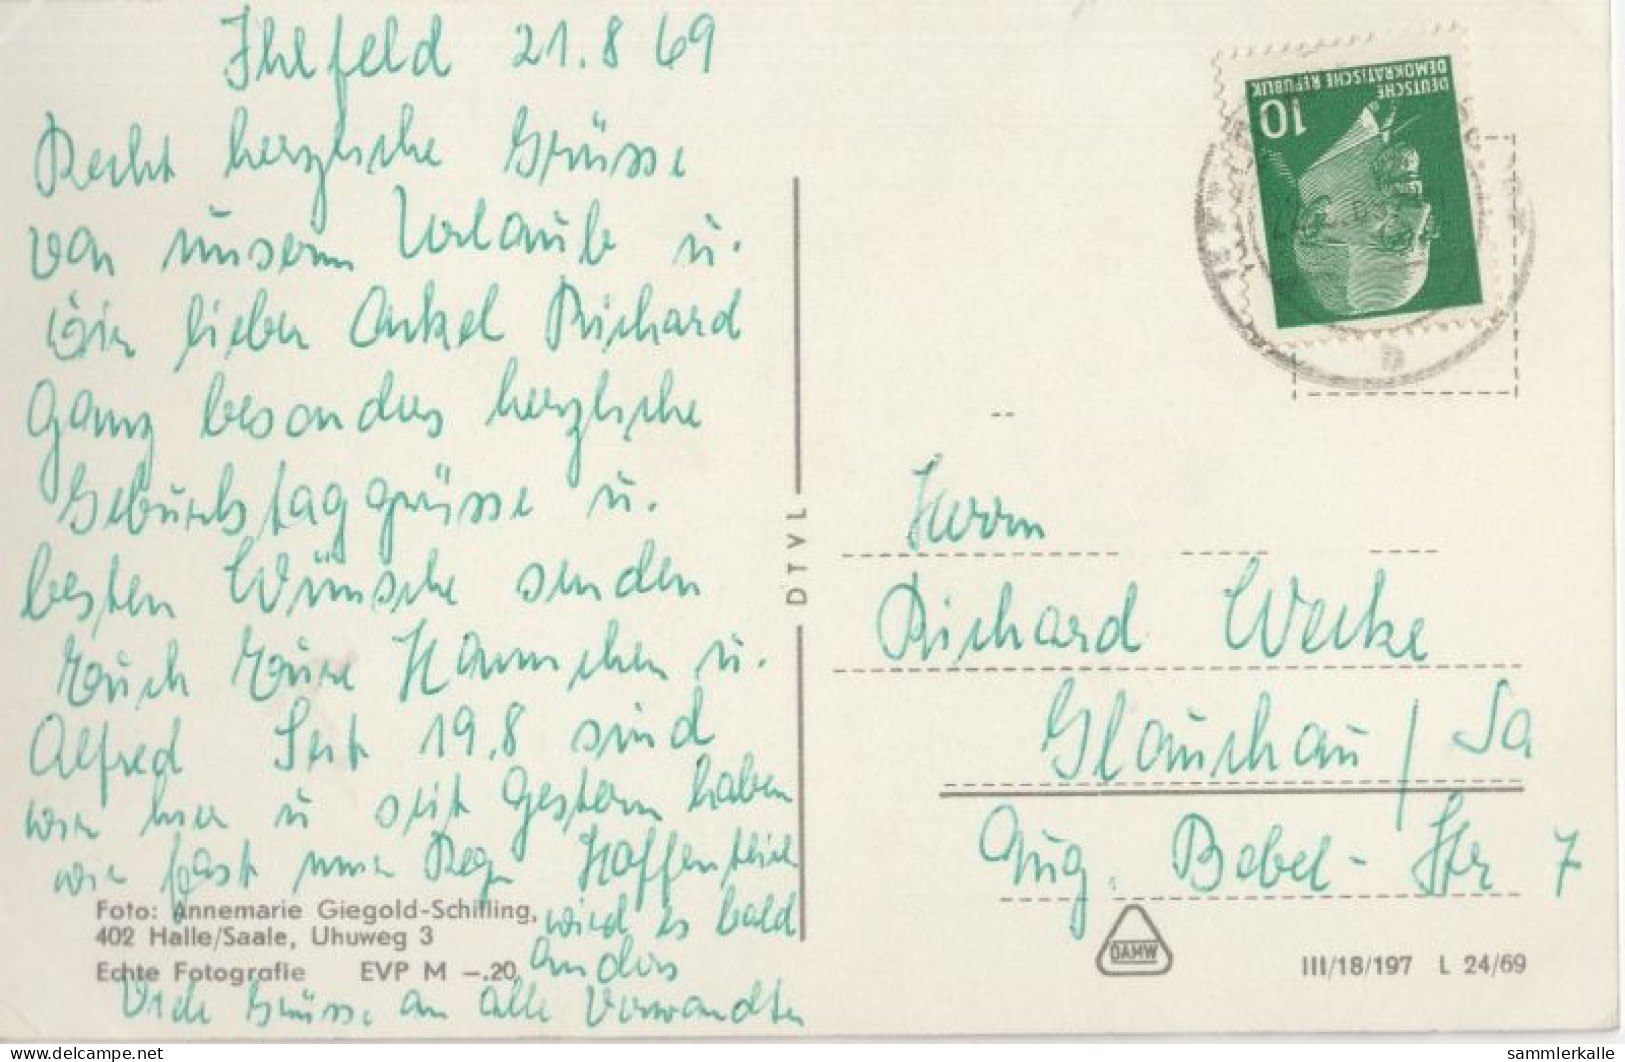 Ihlfeld 21.8 69
Recht herzliche Grüsse
von unserm Urlaub u.
Dir lieber Onkel Richard
Ganz besonders herzliche
Geburtstaggrüsse u.
besten Wünsche senden
Euch Eure Hannchen u.
Alfred Seit 19.8 sind
wir hier u seit Gestern haben
wir fast nur Reg Hoffentlich
wird es bald
anders
Viele Grüsse an alle Verwandten
Foto: Annemarie Giegold-Schilling,
402 Halle/Saale, Uhuweg 3
Echte Fotografie EVP M -.20
DTVL
DEUTSCHE
DEMOKRATISCHE REPUBLIK
10
Herrn
Richard Werke
Glauchau / Sa
Aug. Bebel-Str 7
DAMW
III/18/197 L 24/69
www.delcampe.net
sammlerkalle